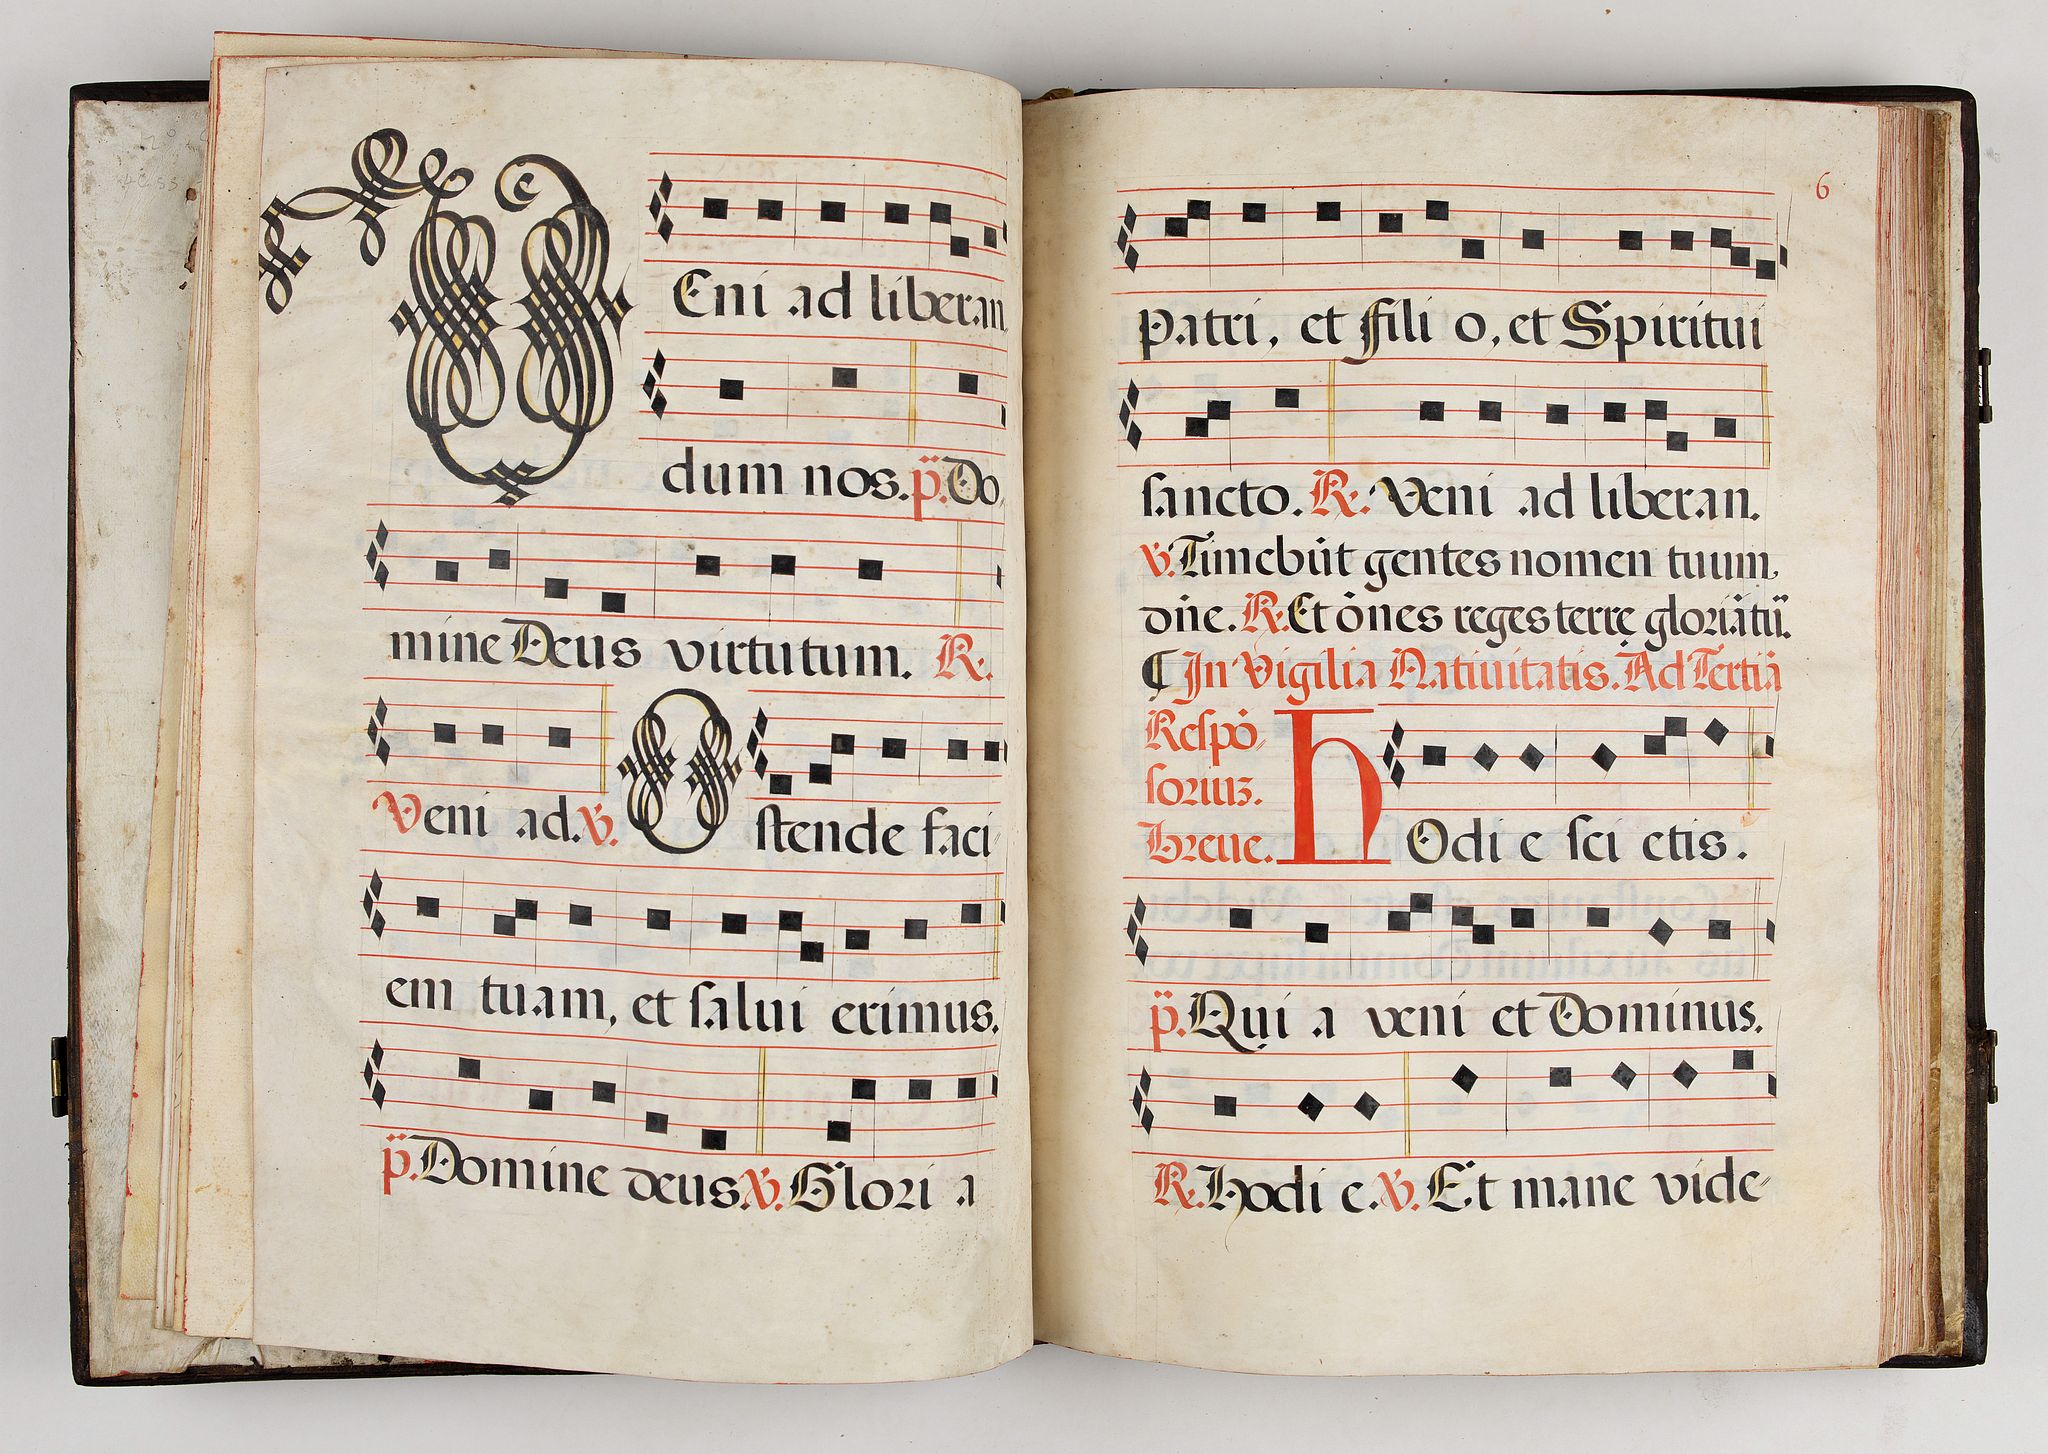 VEni ad liberan
dum nos. p. Do
mine Deus virtutum. R.
Veni ad. V. Ostende faci
em tuam, et salui erimus.
p. Domine deus V. Glori a
6
Patri, et fili o, et Spiritui
sancto. R. Veni ad liberan.
V. Timebūt gentes nomen tuum,
dñe. R. Et oñes reges terrę gloriā tuā.
¶ In Vigilia Natiuitatis. Ad Tertiā
Respō
soriuꝫ
breue. hOdi e sci etis.
p. Qui a veni et Dominus.
R. Hodi e. V. Et mane vide-